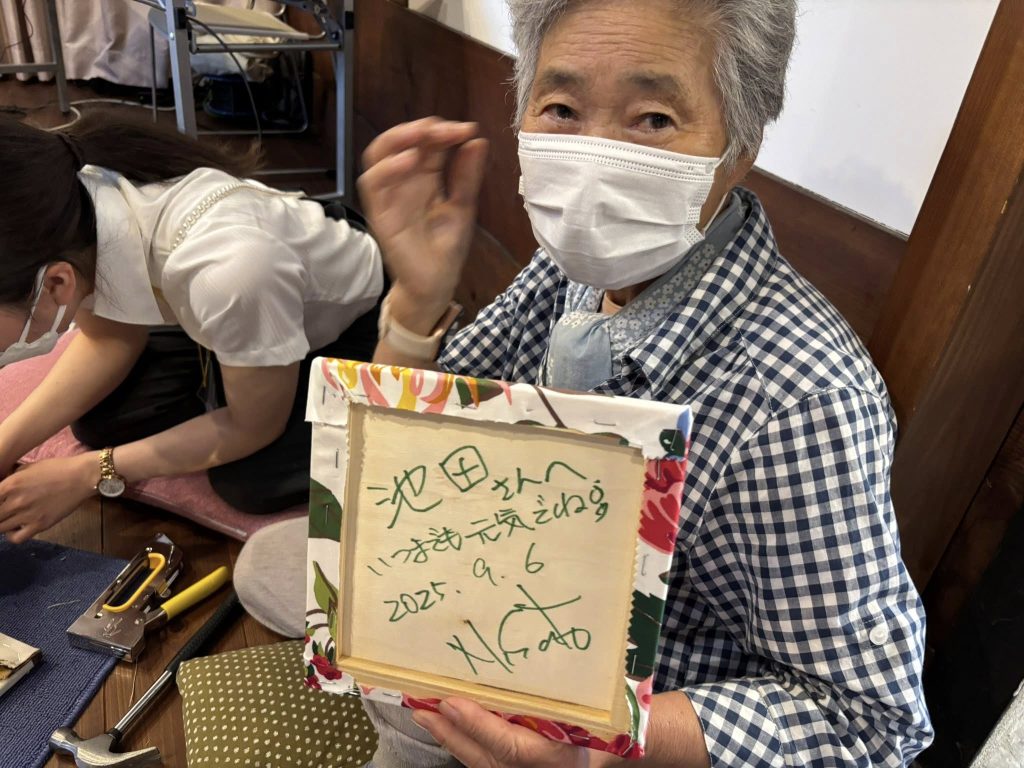 池田さんへ
いつまでも元気でね。
2025. 9. 6